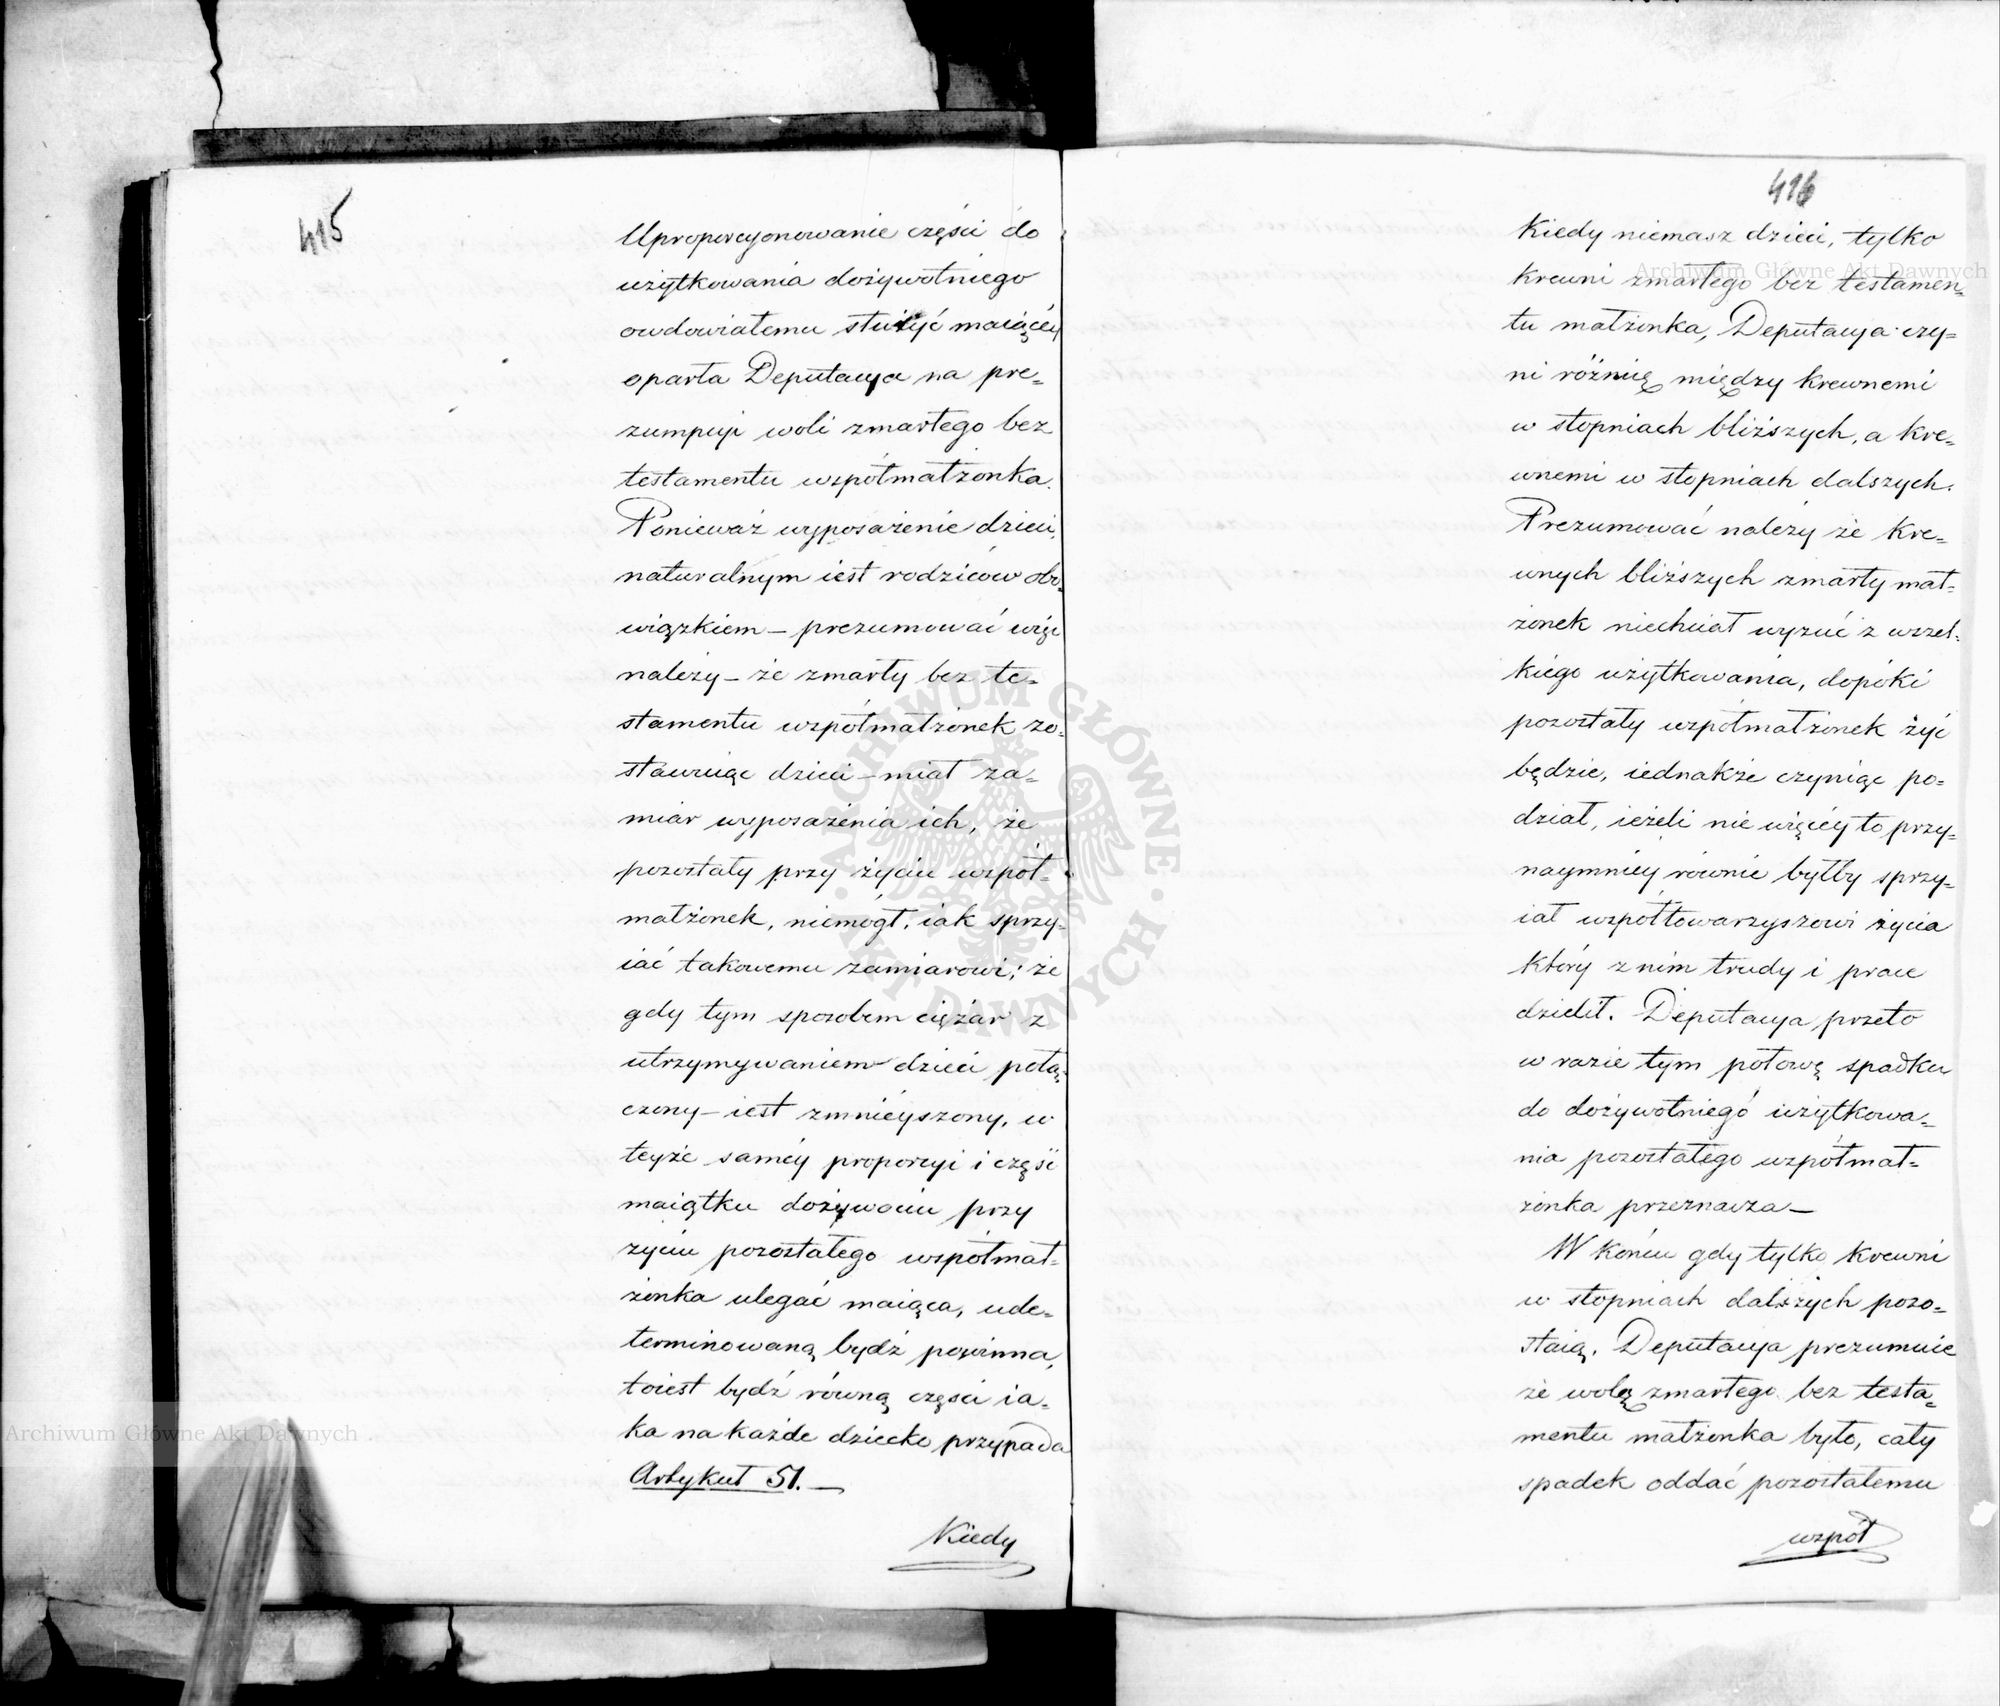 415
Uproporcyonowanie części do
użytkowania dożywotniego
owdowiałemu służyć maiącéy
oparła Deputacya na pre=
zumpcyi woli zmarłego bez
testamentu współmałżonka.
Ponieważ wyposażenie dzieci,
naturalnym iest rodziców obo=
wiązkiem – prezumować więc
należy – że zmarły bez te=
stamentu współmałżonek zo=
stawuiąc dzieci – miał za=
miar wyposażenia ich, że
pozostały przy życiu współ=
małżonek, niemógł, iak sprzy=
iać takowemu zamiarowi; że
gdy tym sposobem ciężar z
utrzymywaniem dzieci połą=
czony – iest zmnieyszony, w
teyże saméy proporcyi i część
maiątku dożywociu przy
życiu pozostałego współmał=
żonka ulegać maiąca, ude=
terminowaną bydź powinna,
toiest bydź równą części ia=
ka na każde dziecko przypada
Artykuł 51. –
Kiedy
416
Kiedy niemasz dzieci, tylko
krewni zmarłego bez testamen=
tu małżonka, Deputacya czy=
ni różnicę między krewnemi
w stopniach bliższych, a kre=
wnemi w stopniach dalszych.
Prezumować należy że kre=
wnych bliższych zmarły mał=
żonek niechciał wyzuć z wszel=
kiego użytkowania, dopóki
pozostały współmałżonek żyć
będzie, iednakże czyniąc po=
dział, ieżeli nie więcéy to przy=
naymniéy równie byłby sprzy=
iał współtowarzyszowi życia
który z nim trudy i prace
dzielił. Deputacya przeto
w razie tym połowę spadku
do dożywotniego użytkowa=
nia pozostałego współmał=
żonka przeznacza –
W końcu gdy tylko krewni
w stopniach dalszych pozo=
staią, Deputacya prezumuie
że wolą zmarłego bez testa=
mentu małżonka było, cały
spadek oddać pozostałemu
współ
Archiwum Główne Akt Dawnych
Archiwum Główne Akt Dawnych
ARCHIWUM GŁÓWNE AKT DAWNYCH